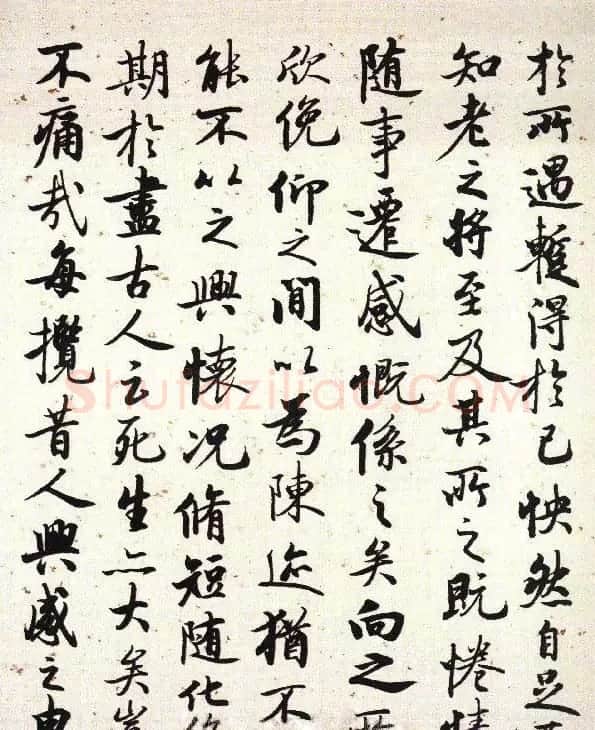 於所遇暫得於己怏然自足
知老之將至及其所之既惓情
随事遷感慨係之矣向之所
欣俛仰之間以為陳迹猶不
能不以之興懷况脩短随化
期於盡古人云死生亦大矣豈
不痛哉每攬昔人興感之由
Shufaziliao.COM